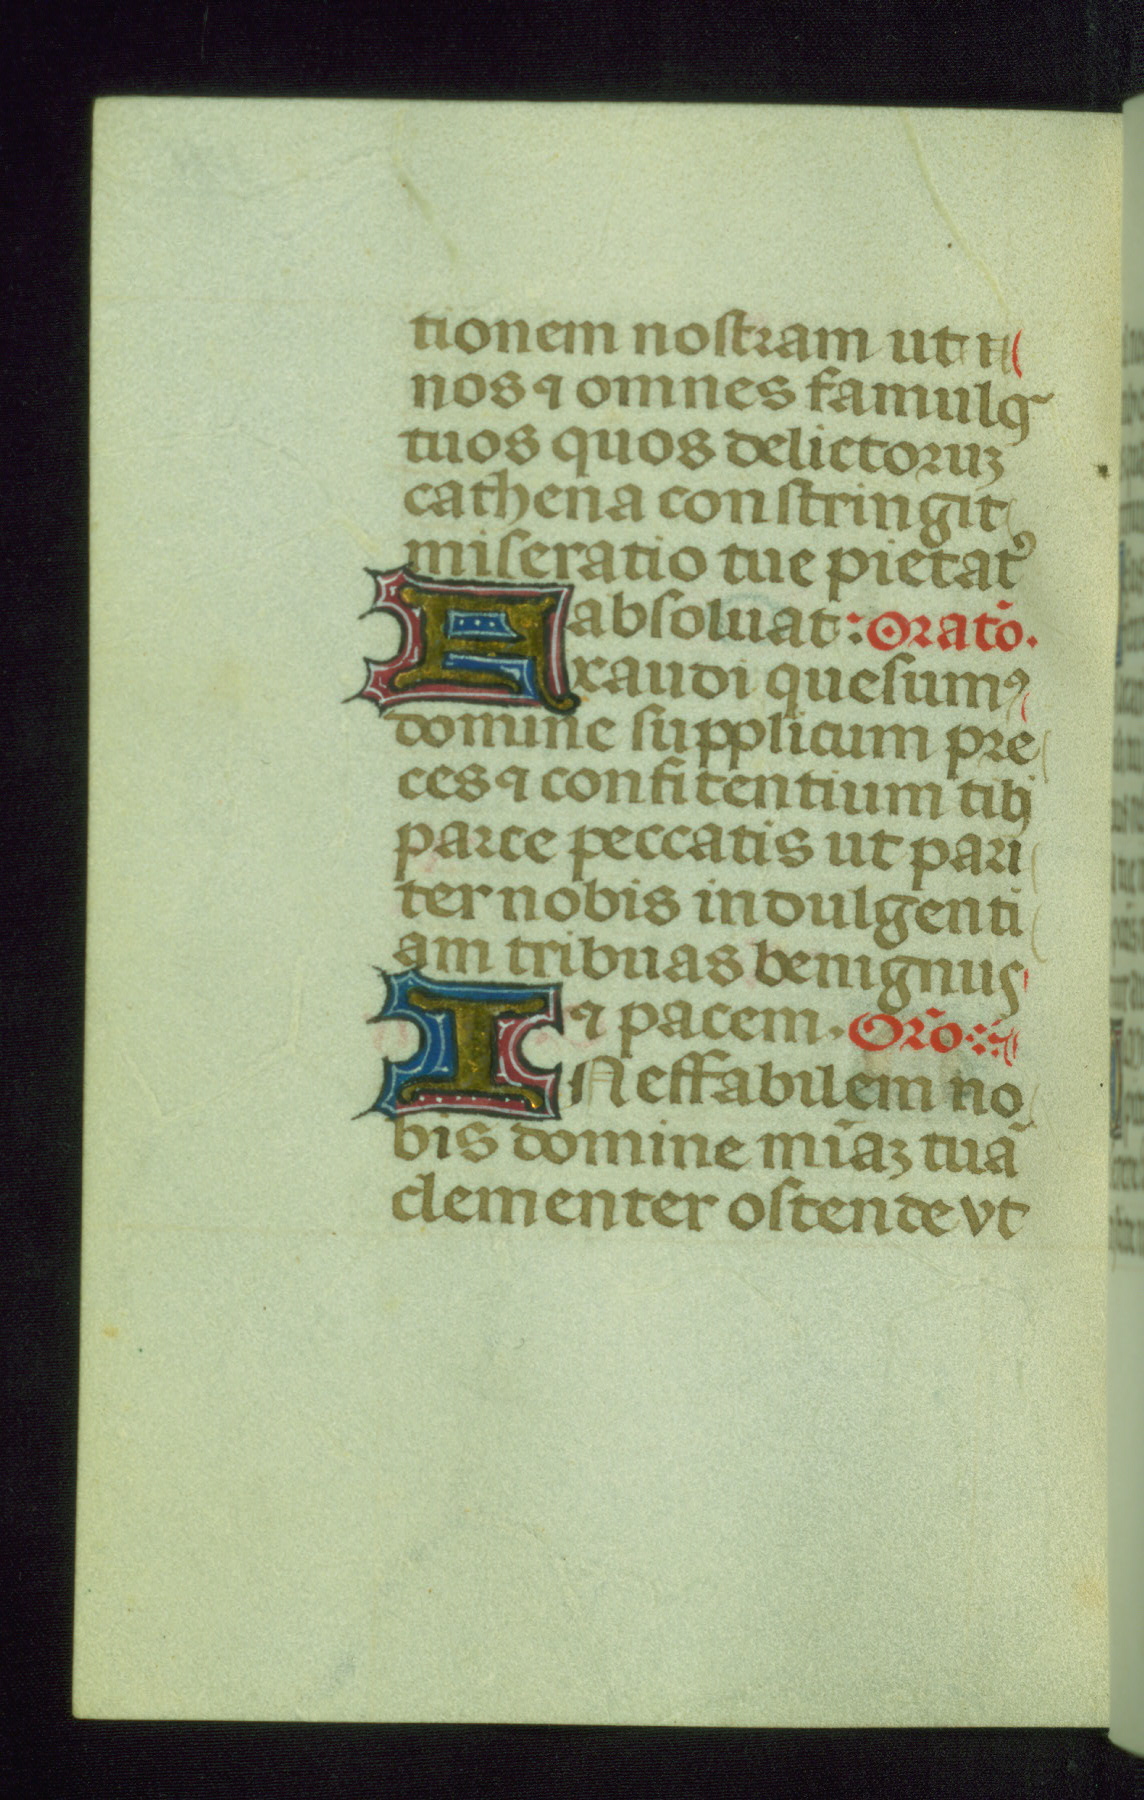 tionem nostram ut n
nos ⁊ omnes famulos
tuos quos delictoruꝫ
cathena constringit
miseratio tue pietatꝰ
absoluat: Oratõ.
Exaudi quesumꝰ
domine supplicum pre
ces ⁊ confitentium tibi
parce peccatis ut pari
ter nobis indulgenti
am tribuas benignus
⁊ pacem. Orõ
INeffabilem no
bis domine mĩaꝫ tuã
clementer ostende vt